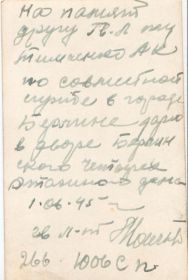 На память
другу Гв. Л-ту
Тимченко АК
по совместной
службе в городе
Берлине дарю
в дворе Берлин
ского четырех
этажного дома
1.06.45 г
Гв Л-нт
266. 1006 СП